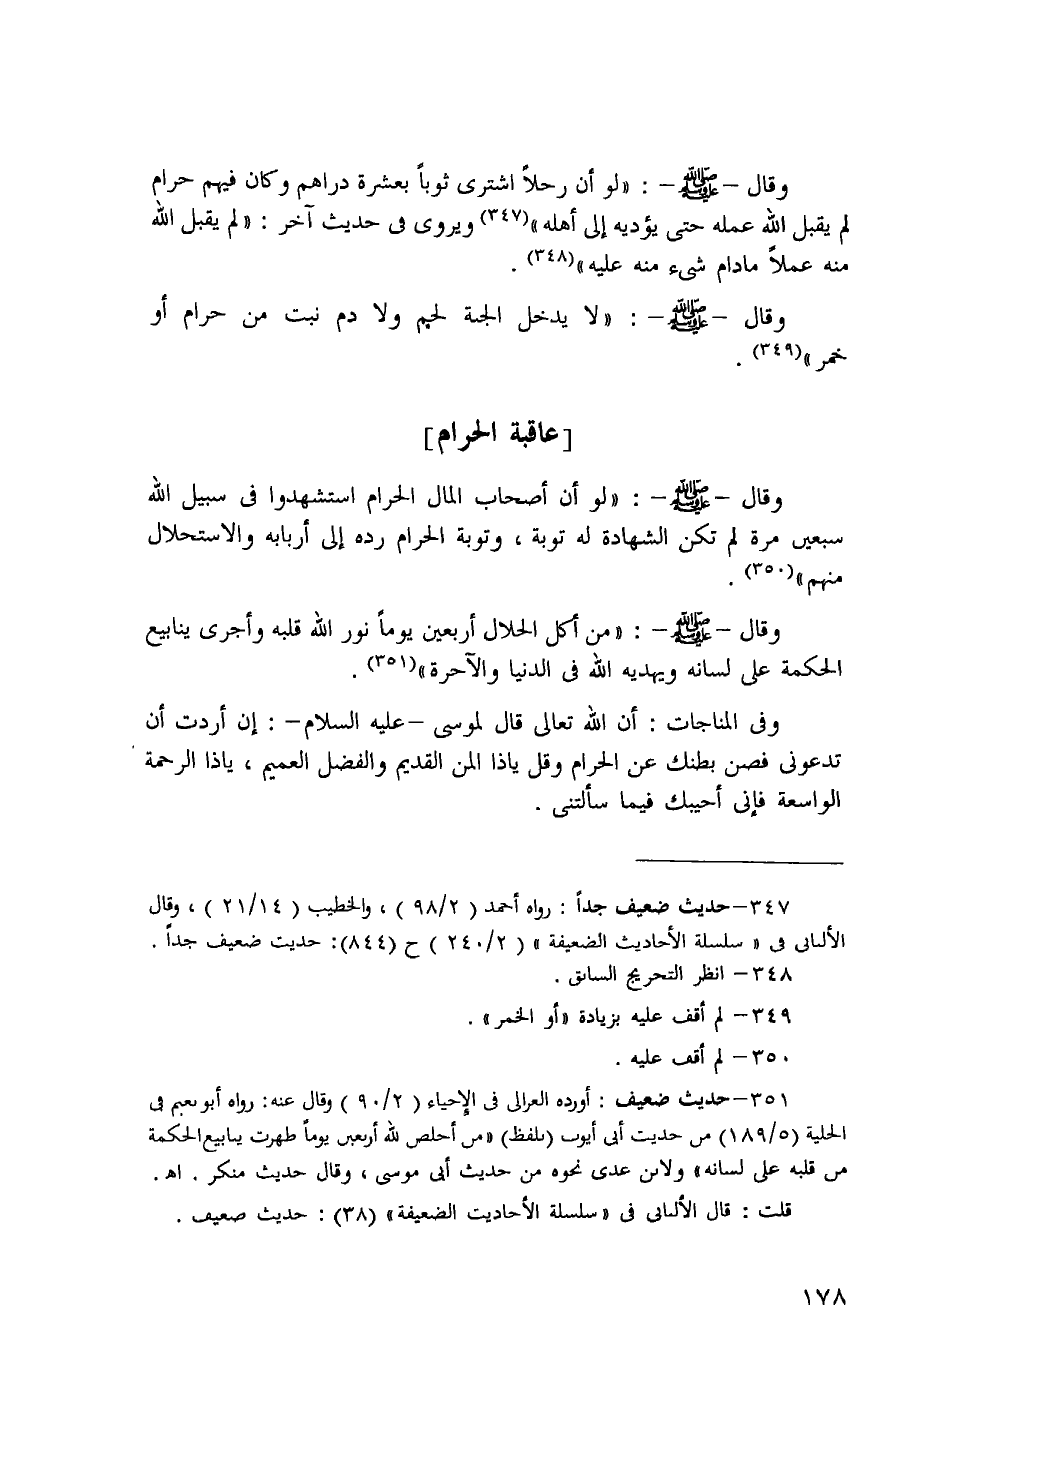 وقال –ﷺ– : «لو أن رجلاً اشترى ثوباً بعشرة دراهم وكان فيهم حرام
لم يقبل الله عمله حتى يؤديه إلى أهله»(٣٤٧) ويروى فى حديث آخر : «لم يقبل الله
منه عملاً مادام شىء منه عليه»(٣٤٨) .
وقال –ﷺ– : «لا يدخل الجنة لحم ولا دم نبت من حرام أو
خمر»(٣٤٩) .
[عاقبة الحرام]
وقال –ﷺ– : «لو أن أصحاب المال الحرام استشهدوا فى سبيل الله
سبعين مرة لم تكن الشهادة له توبة ، وتوبة الحرام رده إلى أربابه والاستحلال
منهم»(٣٥٠) .
وقال –ﷺ– : «من أكل الحلال أربعين يوماً نور الله قلبه وأجرى ينابيع
الحكمة على لسانه ويهديه الله فى الدنيا والآخرة»(٣٥١) .
وفى المناجات : أن الله تعالى قال لموسى –عليه السلام– : إن أردت أن
تدعونى فصن بطنك عن الحرام وقل ياذا المن القديم والفضل العميم ، ياذا الرحمة
الواسعة فإنى أجيبك فيما سألتنى .
٣٤٧–حديث ضعيف جداً : رواه أحمد ( ٩٨/٢ ) ، والخطيب ( ٢١/١٤ ) ، وقال
الألبانى فى « سلسلة الأحاديث الضعيفة » ( ٢٤٠/٢ ) ح (٨٤٤): حديث ضعيف جداً .
٣٤٨– انظر التخريج السابق .
٣٤٩– لم أقف عليه بزيادة «أو الخمر» .
٣٥٠– لم أقف عليه .
٣٥١–حديث ضعيف : أورده الغزالى فى الإحياء ( ٩٠/٢ ) وقال عنه: رواه أبو نعيم فى
الحلية (١٨٩/٥) من حديث أبى أيوب (بلفظ) «من أخلص لله أربعين يوماً ظهرت ينابيع الحكمة
من قلبه على لسانه» ولابن عدى نحوه من حديث أبى موسى ، وقال حديث منكر . اهـ .
قلت : قال الألبانى فى «سلسلة الأحاديث الضعيفة» (٣٨) : حديث ضعيف .
١٧٨